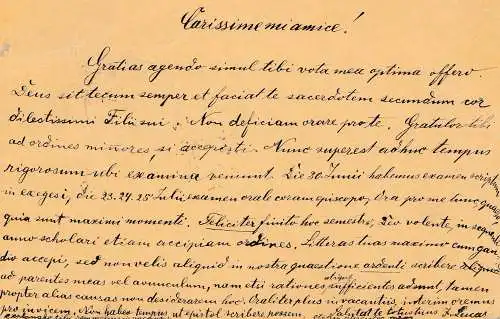 Carissime mi amice!
Gratias agendo simul tibi vota mea optima offero.
Deus sit tecum semper et faciat te sacerdotem secundum cor
dilectissimi Filii sui. Non deficiam orare pro te. Gratulor tibi
ad ordines minores, si accepisti. Nunc superest adhuc tempus
rigorosum ubi examina veniunt. Die 30 Junii habemus examen script.
in exegesi, die 23. 24. 25 Julii examen orale coram episcopo. Ora pro me tunc, quae
quia sunt maximi momenti. Feliciter finito hoc semestre, Deo volente, in seque
anno scholari etiam accipiam ordines. Litteras tuas maximo cum gau
dio accepi, sed non velis aliquid in nostra quaestione ardenti scribere
ad parentes meas vel avunculum, nam etsi rationes sufficientes adsunt, tamen
aliquae
propter alias causas non desiderarem hoc. Oraliter plus in vacantiis, interim oremus
pro invicem. Non habeo tempus, ut epistol. scribere possem. totus tuus J. Lucas